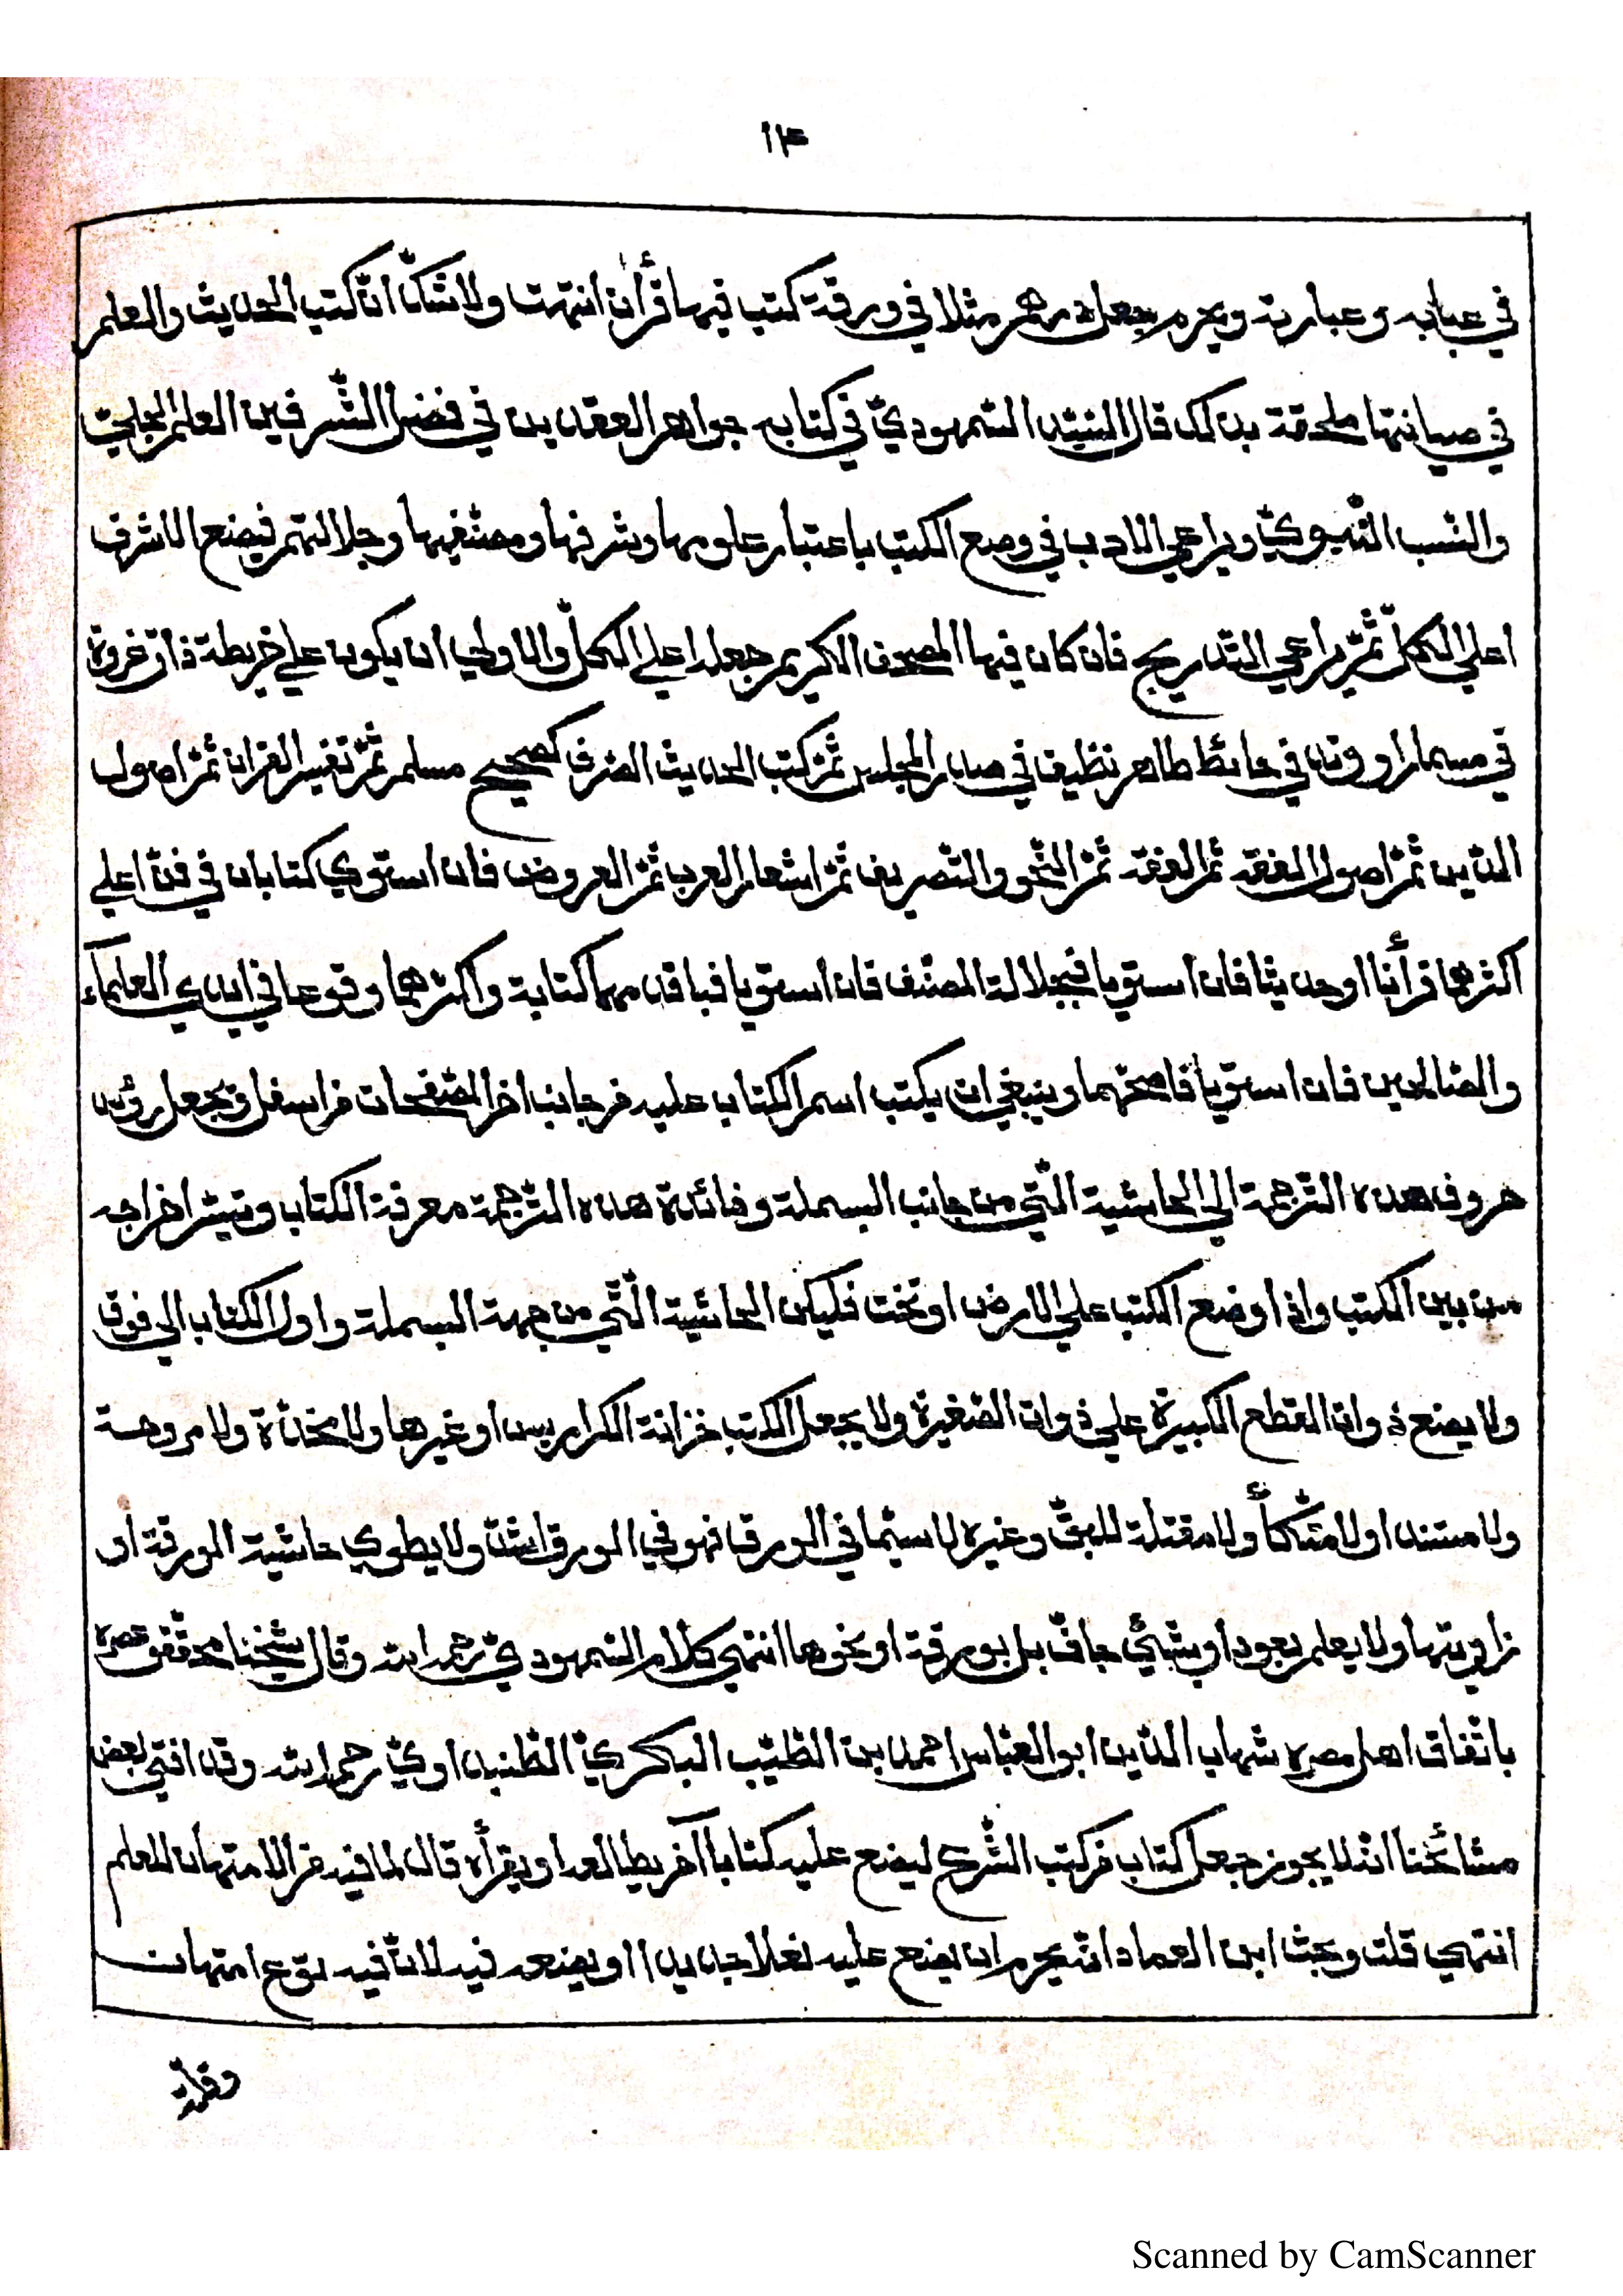 ١١٤
في عبابه وعبارته ويحرم جعل درهم مثلا في ورقة كتب فيها قرأن انتهت ولا شكّ انّ كتب الحديث والعلم
في صيانتها ملحقة بذلك قال السّيّد السّمهوديّ في كتابه جواهر العقدين في فضل الشّرفين العلم الجليّ
والنّسب النّبويّ ويراعي الادب في وضع الكتب باعتبار علومها وشرفها ومصنّفيها وجلالتهم فيضع الاشرف
اعلي الكلّ ثمّ يراعي التّدريج فان كان فيها المصحف الكريم جعله اعلي الكلّ والاولي ان يكون علي خريطة ذات عروة
في مسمار او وتد في حائط طاهر نظيف في صدر المجلس ثمّ كتب الحديث الصّرف كصحيح مسلم ثمّ تفسير القران ثمّ اصول
الدّين ثمّ اصول الفقه ثمّ الفقه ثمّ النّحو والتّصريف ثمّ اشعار العرب ثمّ العروض فان استوي كتابان في فنّ اعلي
اكثرهما قرأنا او حديثا فان استويا فبجلالة المصنّف فان استويا فباقدمهما كتابة واكثرهما وقوعا في ايدي العلمآء
والصّالحين فان استويا فاصحّهما وينبغي ان يكتب اسم الكتاب عليه من جانب اخر الصّفحات من اسفل ويجعل رؤس
حروف هذه التّرجمة الي الحاشية الّتي من جانب البسملة وفائدة هذه التّرجمة معرفة الكتاب وتيسّر اخراجه
من بين الكتب واذا وضع الكتب علي الارض او تخت فليكن الحاشية الّتي من جهة البسملة واول الكتاب الي فوق
ولا يضع ذوات القطع الكبيرة علي ذوات الصّغيرة ولا يجعل الكتب خزانة الكراريس او غيرها ولا مخدّة ولا مروحة
ولا مستندا ولا متّكأ ولا مقتلة للبقّ وغيره لا سيّما في الورق فهو في الورق اشدّ ولا يطوي حاشية الورقة او
زاويتها ولا يعلم بعود او بشئ جافّ بل بورقة او نحوها انتهي كلام السّمهوديّ رحمه الله وقال شيخنا محقّق عصره
باتّفاق اهل مصره شهاب الدّين ابو العبّاس احمد بن الطّيّب البكريّ الطّنبداويّ رحمه الله وقد افتي بعض
مشائخنا انّه لا يجوز جعل كتاب من كتب الشّرع ليضع عليه كتابا آخر يطالعه او يقرأه قال لما فيه من الامتهان للعلم
انتهي قلت وبحث ابن العماد انّه يحرم ان يضع عليه نعلا جديدا او يضعه فيه لانّ فيه نوع امتهان
Scanned by CamScanner